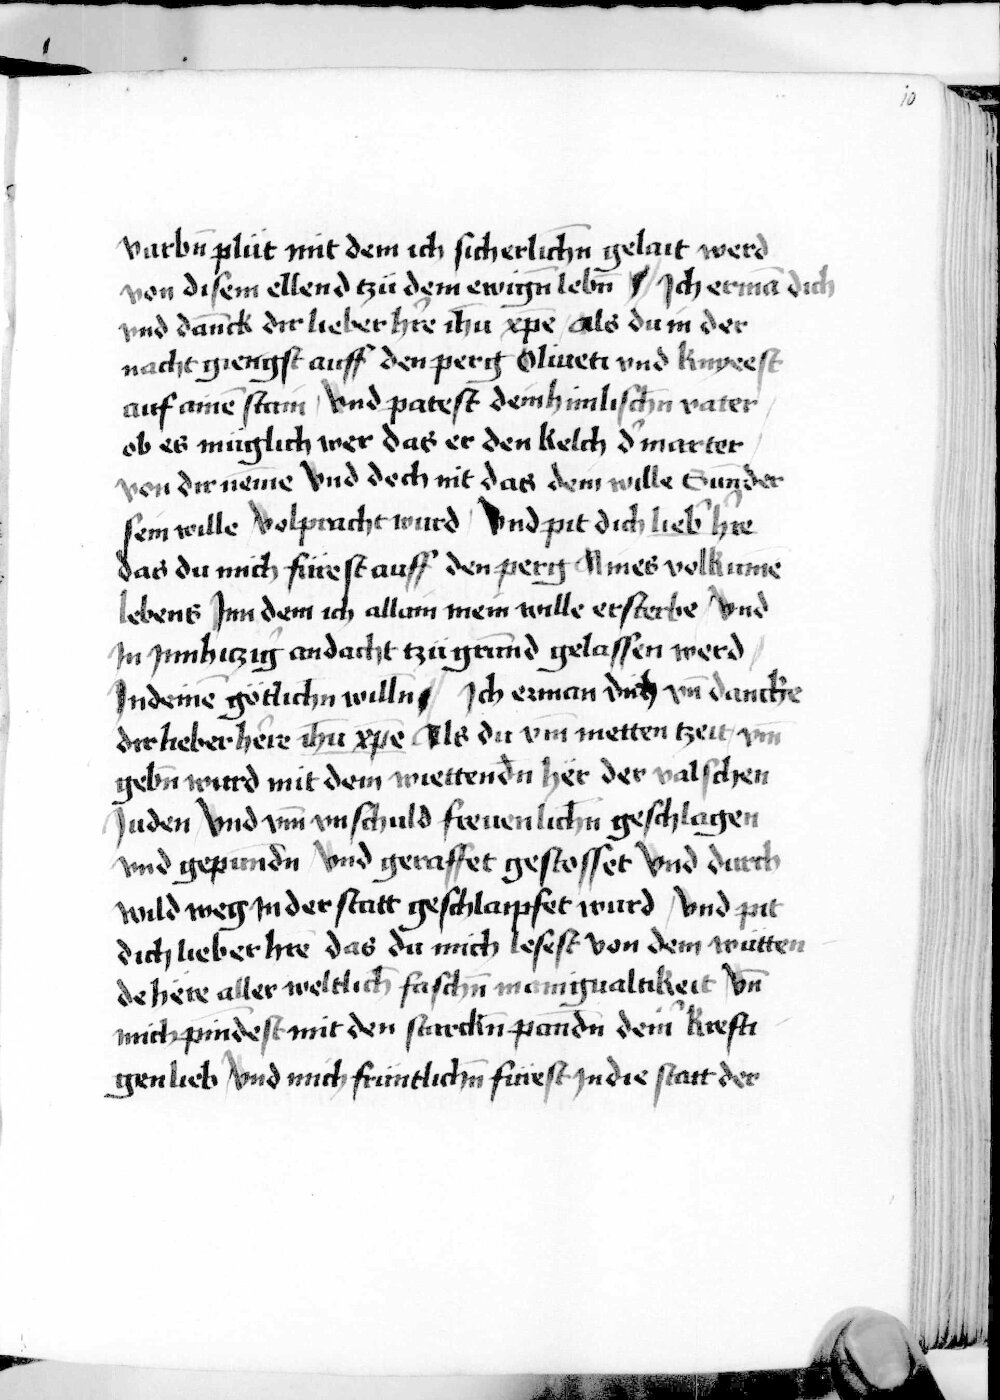 10
varbñ plüt mit dem ich sicherlichñ gelait werd
von disem ellend tzü dem ewigñ lebñ // Ich ermã dich
vnd dãnck dir lieber hr̃e ih̃u xp̃e / als du in der
nacht giengst auff den perg Oliueti vnd knyeest
auf ainẽ stain / Vnd patest dein himlischñ vater /
ob es müglich wer das er den kelch d' marter /
von dir nẽme Vnd doch nit das dein wille Sũnder
sein wille / volpracht wurd / Vnd pit dich lieb' hr̃e
das du mich fürest auff den perg Aines volkũme
lebens Jnn dem ich allain mein wille ersterbe / Vnd
Jn Jnnhiczig' andacht tzü grũnd gelassen werd /
Jn deinẽ götlichñ willñ // Ich erman dich vñ dancke
dir lieber her̃e ih̃u xp̃e Als du vm̃ metten tzeit / vm̃
gebñ wurd mit dem wiettendñ her der valschen
Juden / Vnd vm̃ vnschuld freuenlichñ geschlagen
vnd gepundñ / Vnd geraffet gestosset Vnd durch
wild weg Jn der statt geschlaipfet wurd / Vnd pit
dich lieber hr̃e das du mich lesest von dem wütten
de here aller weltlich̃ faschñ manigualtikeit / Vñ
mich pindest mit den starckñ pandñ dein' krefti
gen lieb / Vnd mich früntlichñ fürest Jn die statt der